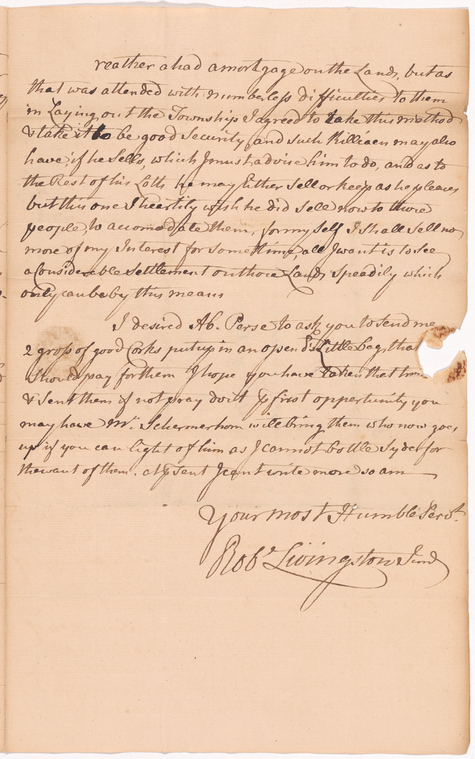 reather a had a mortgage on the Lands, but as
that was attended with numberless difficulties to them
in Laying out the Township I agreed to take this method
& take it to be good Security, and such Killiaen may also
have, if he Sells, which I must advise him to do, and as to
the Rest of his Lotts he may Either sell or keep as he pleases
but this one I heartily wish he did Sell now to those
people to accomodate them, for my Self I shall sell no
more of my Interest for Sometime, all I want is to See
a Considereable settlement on those Lands Speadily which
only can be by this means
I desired Ab. Perse to ask you to send me
2 gross of good Corks put up in an Little bag, that
I should pay for them I hope you have taken that
& Sent them if not pray do it first opportunity you
may have Mr. Schermerhorn will bring them who now goes
up if you can light of him as I cannot bottle Syder for
the want of them. at Sent I cant write more so am
Your most Humble Servt.
Robt Livingston Junr